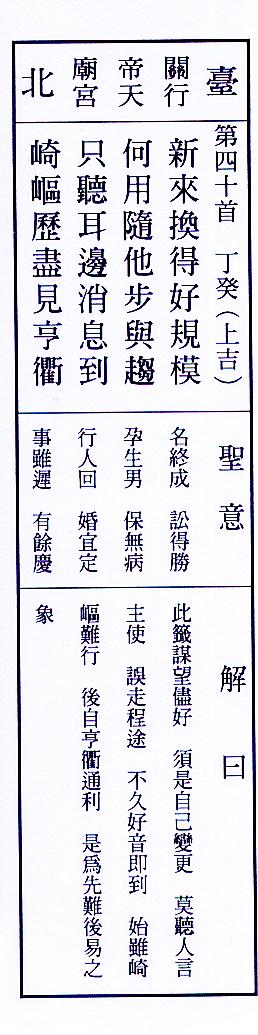 臺
北
關行
帝天
廟宮
第四十首　丁癸（上吉）
新來換得好規模
何用隨他步與趨
只聽耳邊消息到
崎嶇歷盡見亨衢
聖意
名終成　訟得勝
孕生男　保無病
行人回　婚宜定
事雖遲　有餘慶
解曰
此籤謀望儘好　須是自己變更　莫聽人言
主使　誤走程途　不久好音即到　始雖崎
嶇難行　後自亨衢通利　是爲先難後易之
象